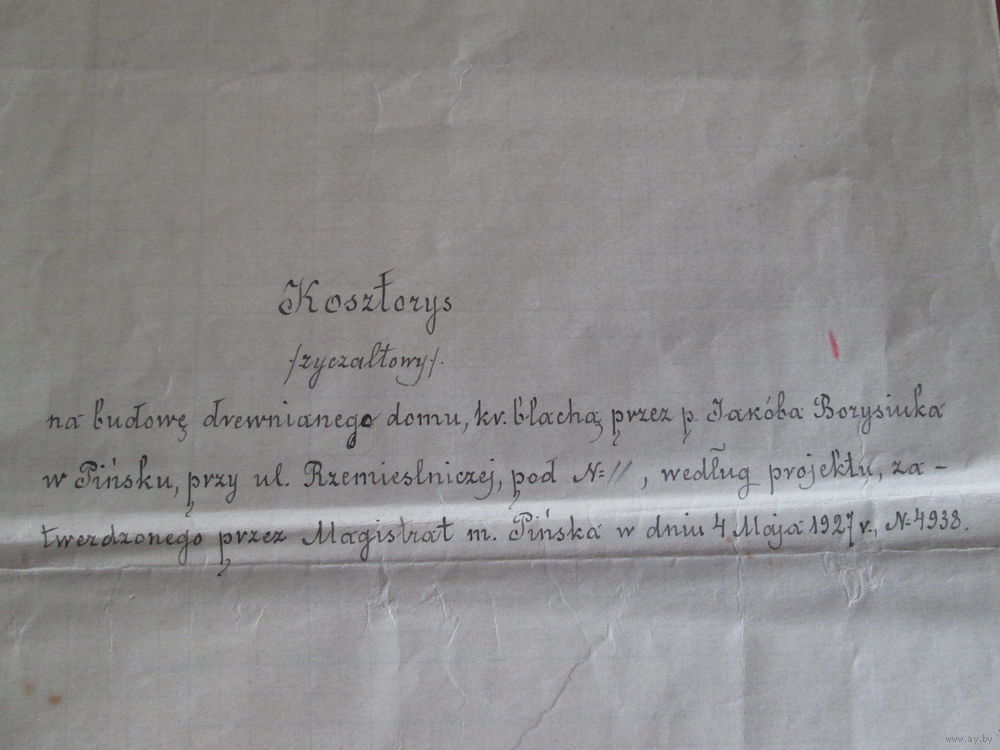 Kosztorys
/ryczałtowy/.
na budowę drewnianego domu, kr. blachą przez p. Jakóba Borysiuka
w Pińsku, przy ul. Rzemieslniczej, pod № 11, według projektu, za-
twerdzonego przez Magistrat m. Pińska w dniu 4 Maja 1927 r., № 4938.
www.ay.by